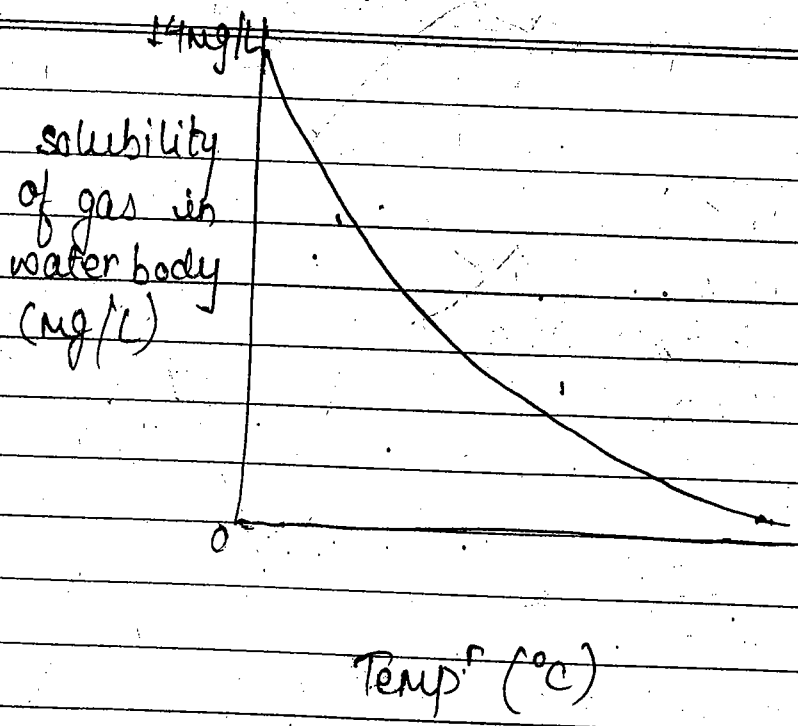 14mg/L
solubility
of gas in
water body
(mg/L)
0
Tempr (°C)